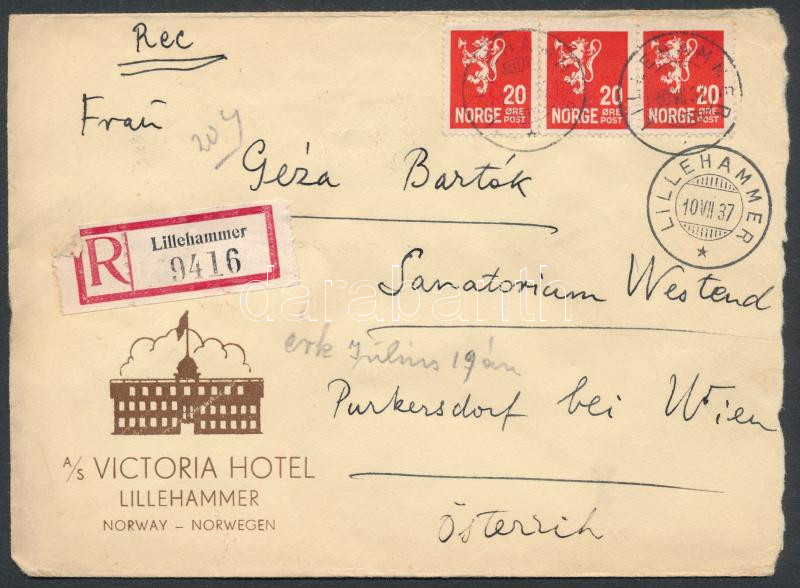 Rec
NORGE 20 ØRE POST
NORGE 20 ØRE POST
NORGE 20 ØRE POST
LILLEHAMMER
LILLEHAMMER
10 VII 37
Frau
Géza Bartók
R Lillehammer
9416
Sanatorium Westend
darabanth
erk Július 19én
Purkersdorf bei Wien
Österreich
A/S VICTORIA HOTEL
LILLEHAMMER
NORWAY – NORWEGEN